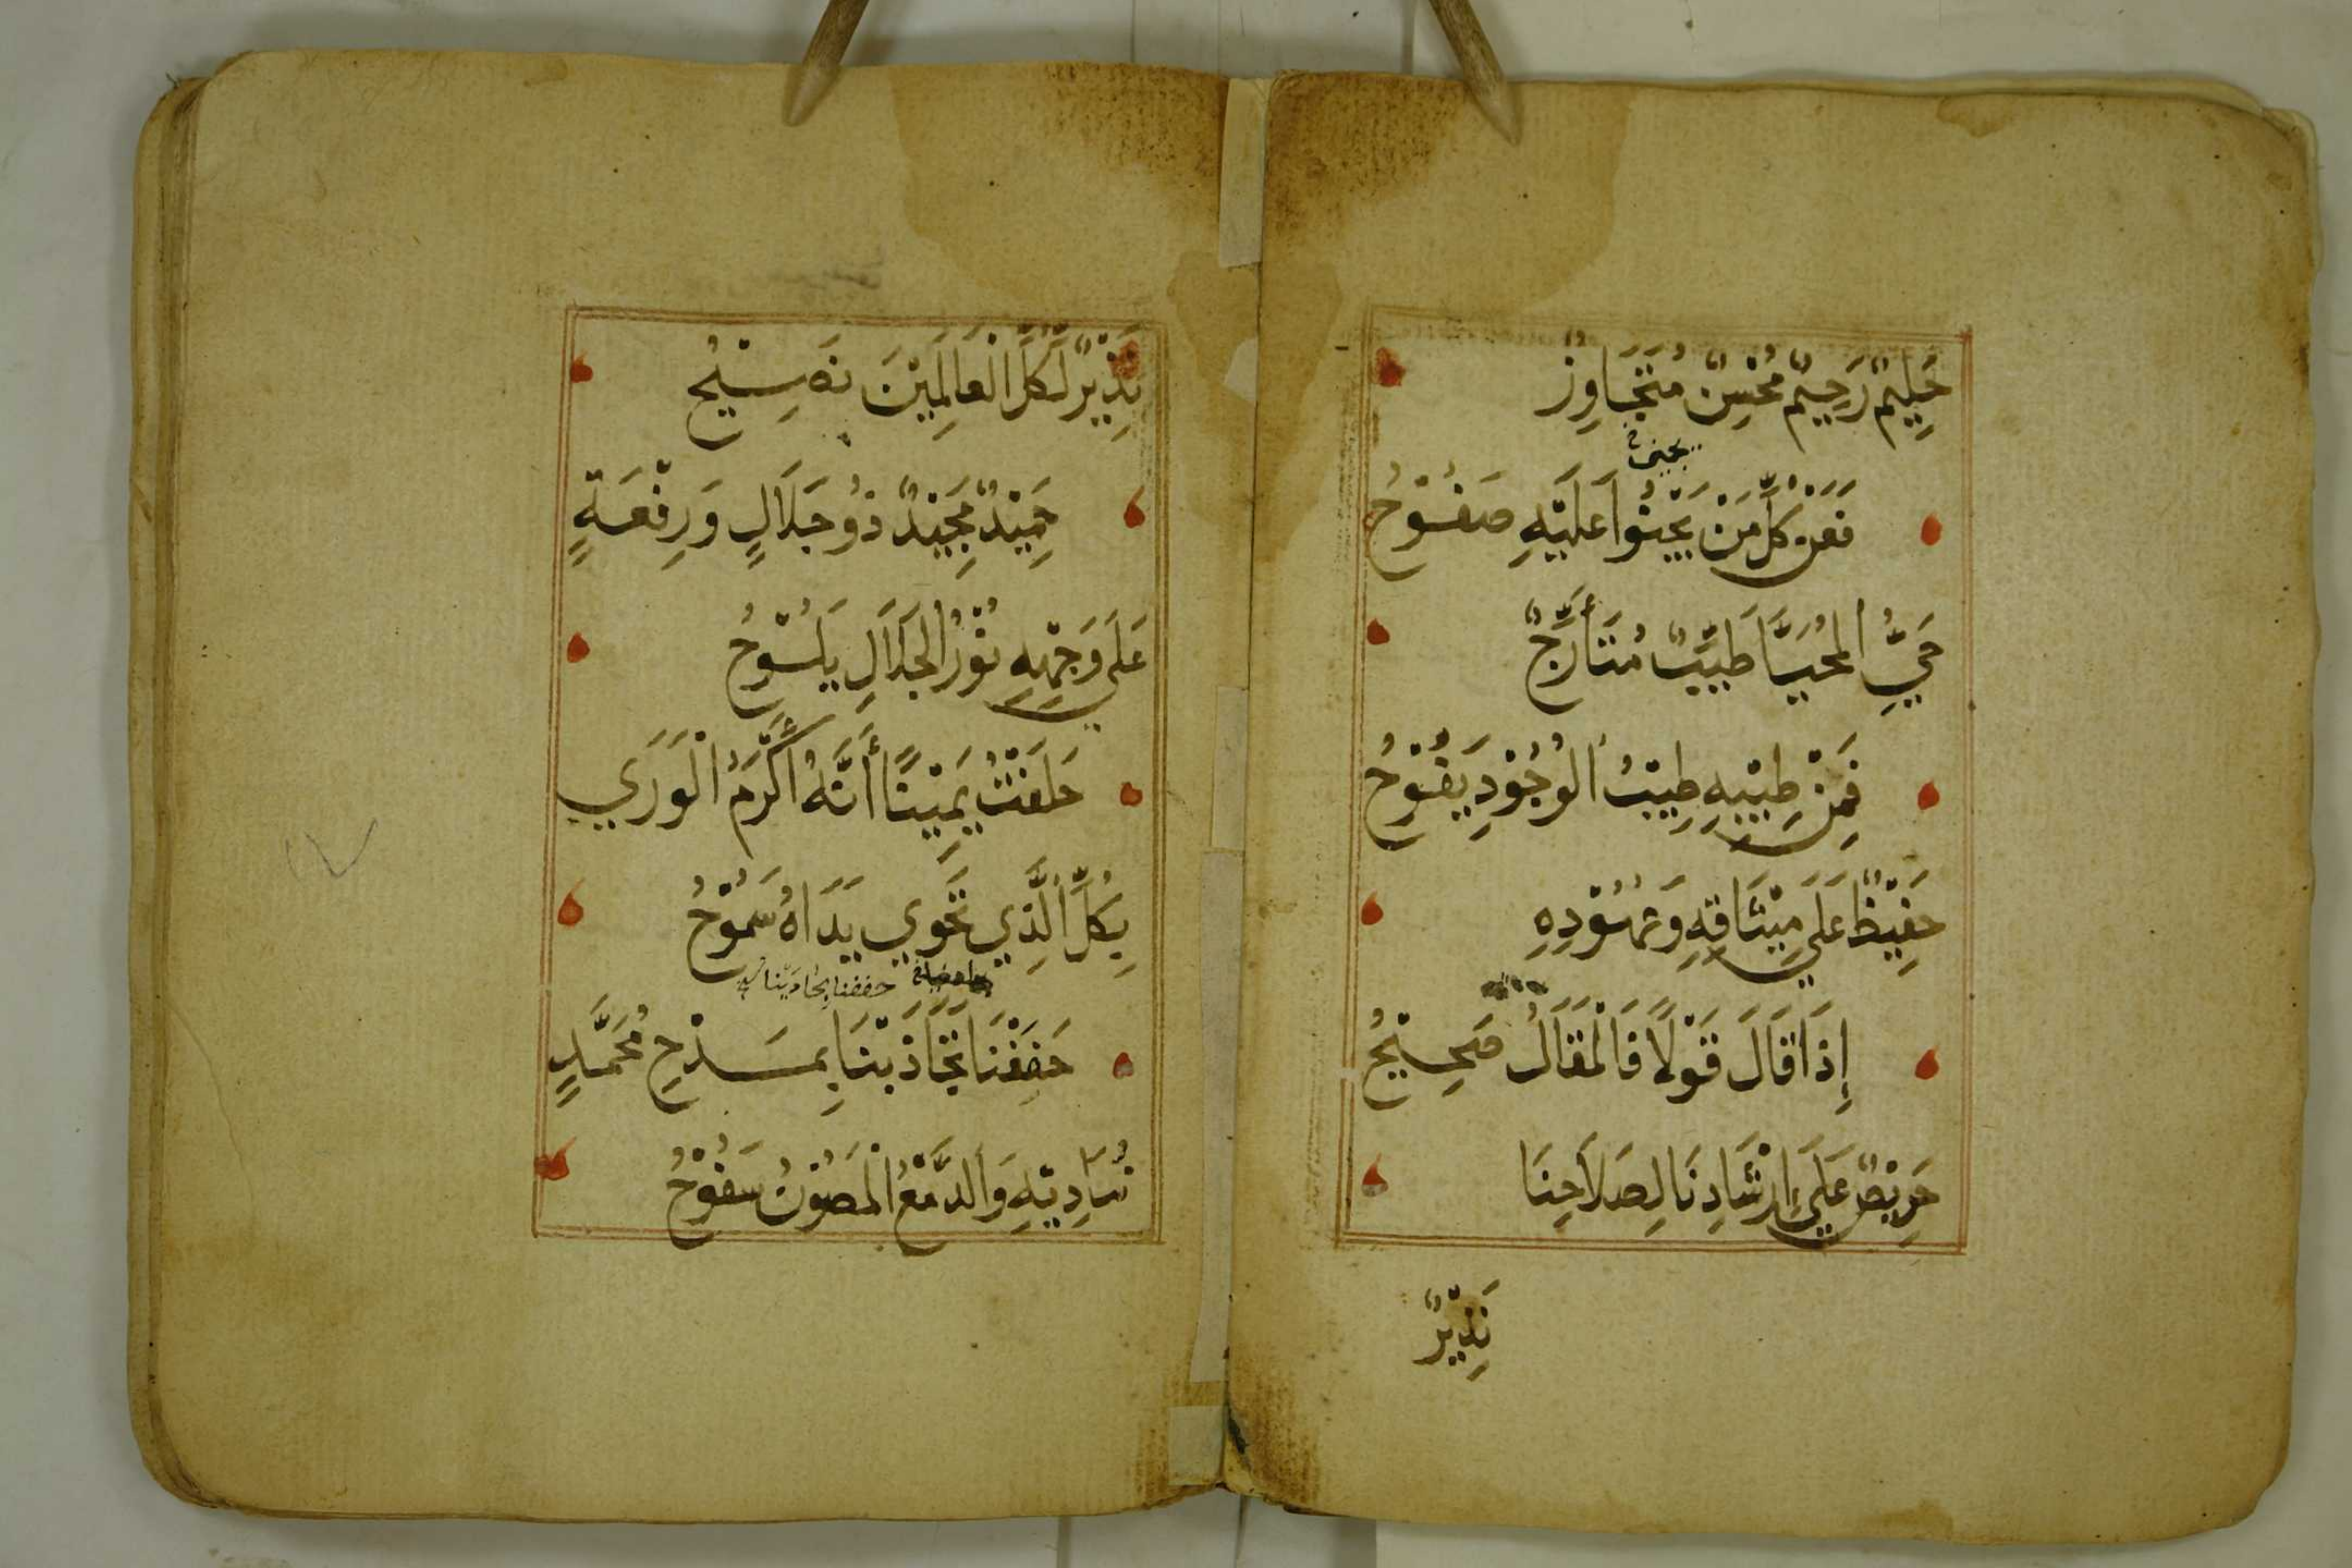 حَلِيمٌ رَحِيمٌ مُحْسِنٌ مُتَجَاوِزٌ
يجني
فَعَنْ كُلِّ مَنْ يَجْنُوا عَلَيْهِ صَفُوْحُ
حَيِيُّ الْمُحَيَّا طَيِّبٌ مُتَأَرِّجٌ
فَمِنْ طِيْبِهِ طِيْبُ الْوُجُوْدِ يَفُوْحُ
حَفِيْظٌ عَلَي مِيْثَاقِهِ وَعُهُوْدِهِ
إِذَا قَالَ قَوْلًا فَالْمَقَالُ صَحِيْحُ
حَرِيْصٌ عَلَي إِرْشَادِنَا لِصَلَاحِنَا
نَذِيْرٌ
نَذِيْرٌ لِكُلِّ الْعَالَمِيْنَ نَصِيْحُ
حَمِيْدٌ مَجِيْدٌ ذُو جَلَالٍ وَرِفْعَةٍ
عَلَي وَجْهِهِ نُوْرُ الْجَلَالِ يَلُوْحُ
حَلَفْتُ يَمِيْنًا أَنَّهُ أَكْرَمُ الْوَرَي
بِكُلِّ الَّذِي تَحْوِي يَدَاهُ سَمُوْحُ
حففنا بحادينا
حَفَفْنَا بِحَادِيْنَا بِمَدْحِ مُحَمَّدٍ
نُنَادِيْهِ وَالدَّمْعُ الْمَصُوْنُ سَفُوْحُ